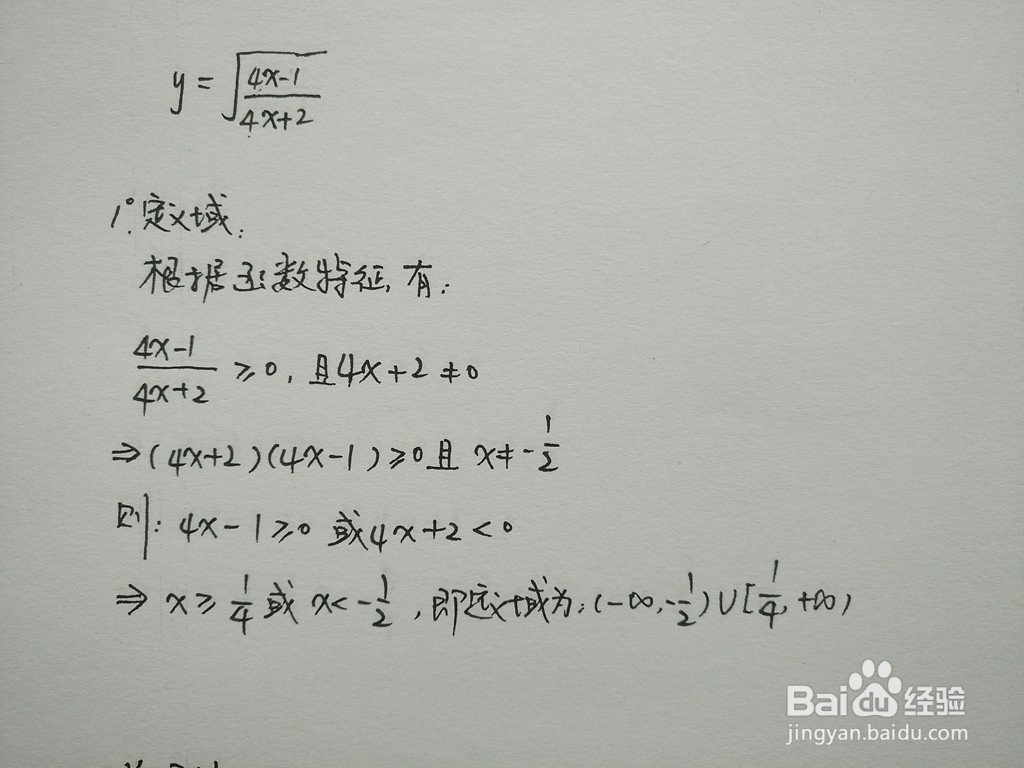 y = √((4x-1)/(4x+2))
1°.定义域:
根据函数特征,有:
(4x-1)/(4x+2) ≥0, 且4x+2≠0
⇒(4x+2)(4x-1)≥0且 x≠-1/2
则: 4x-1≥0 或4x+2<0
⇒ x≥1/4或 x<-1/2, 即定义域为:(-∞,-1/2)∪[1/4,+∞)
Baidu经验
jingyan.baidu.com